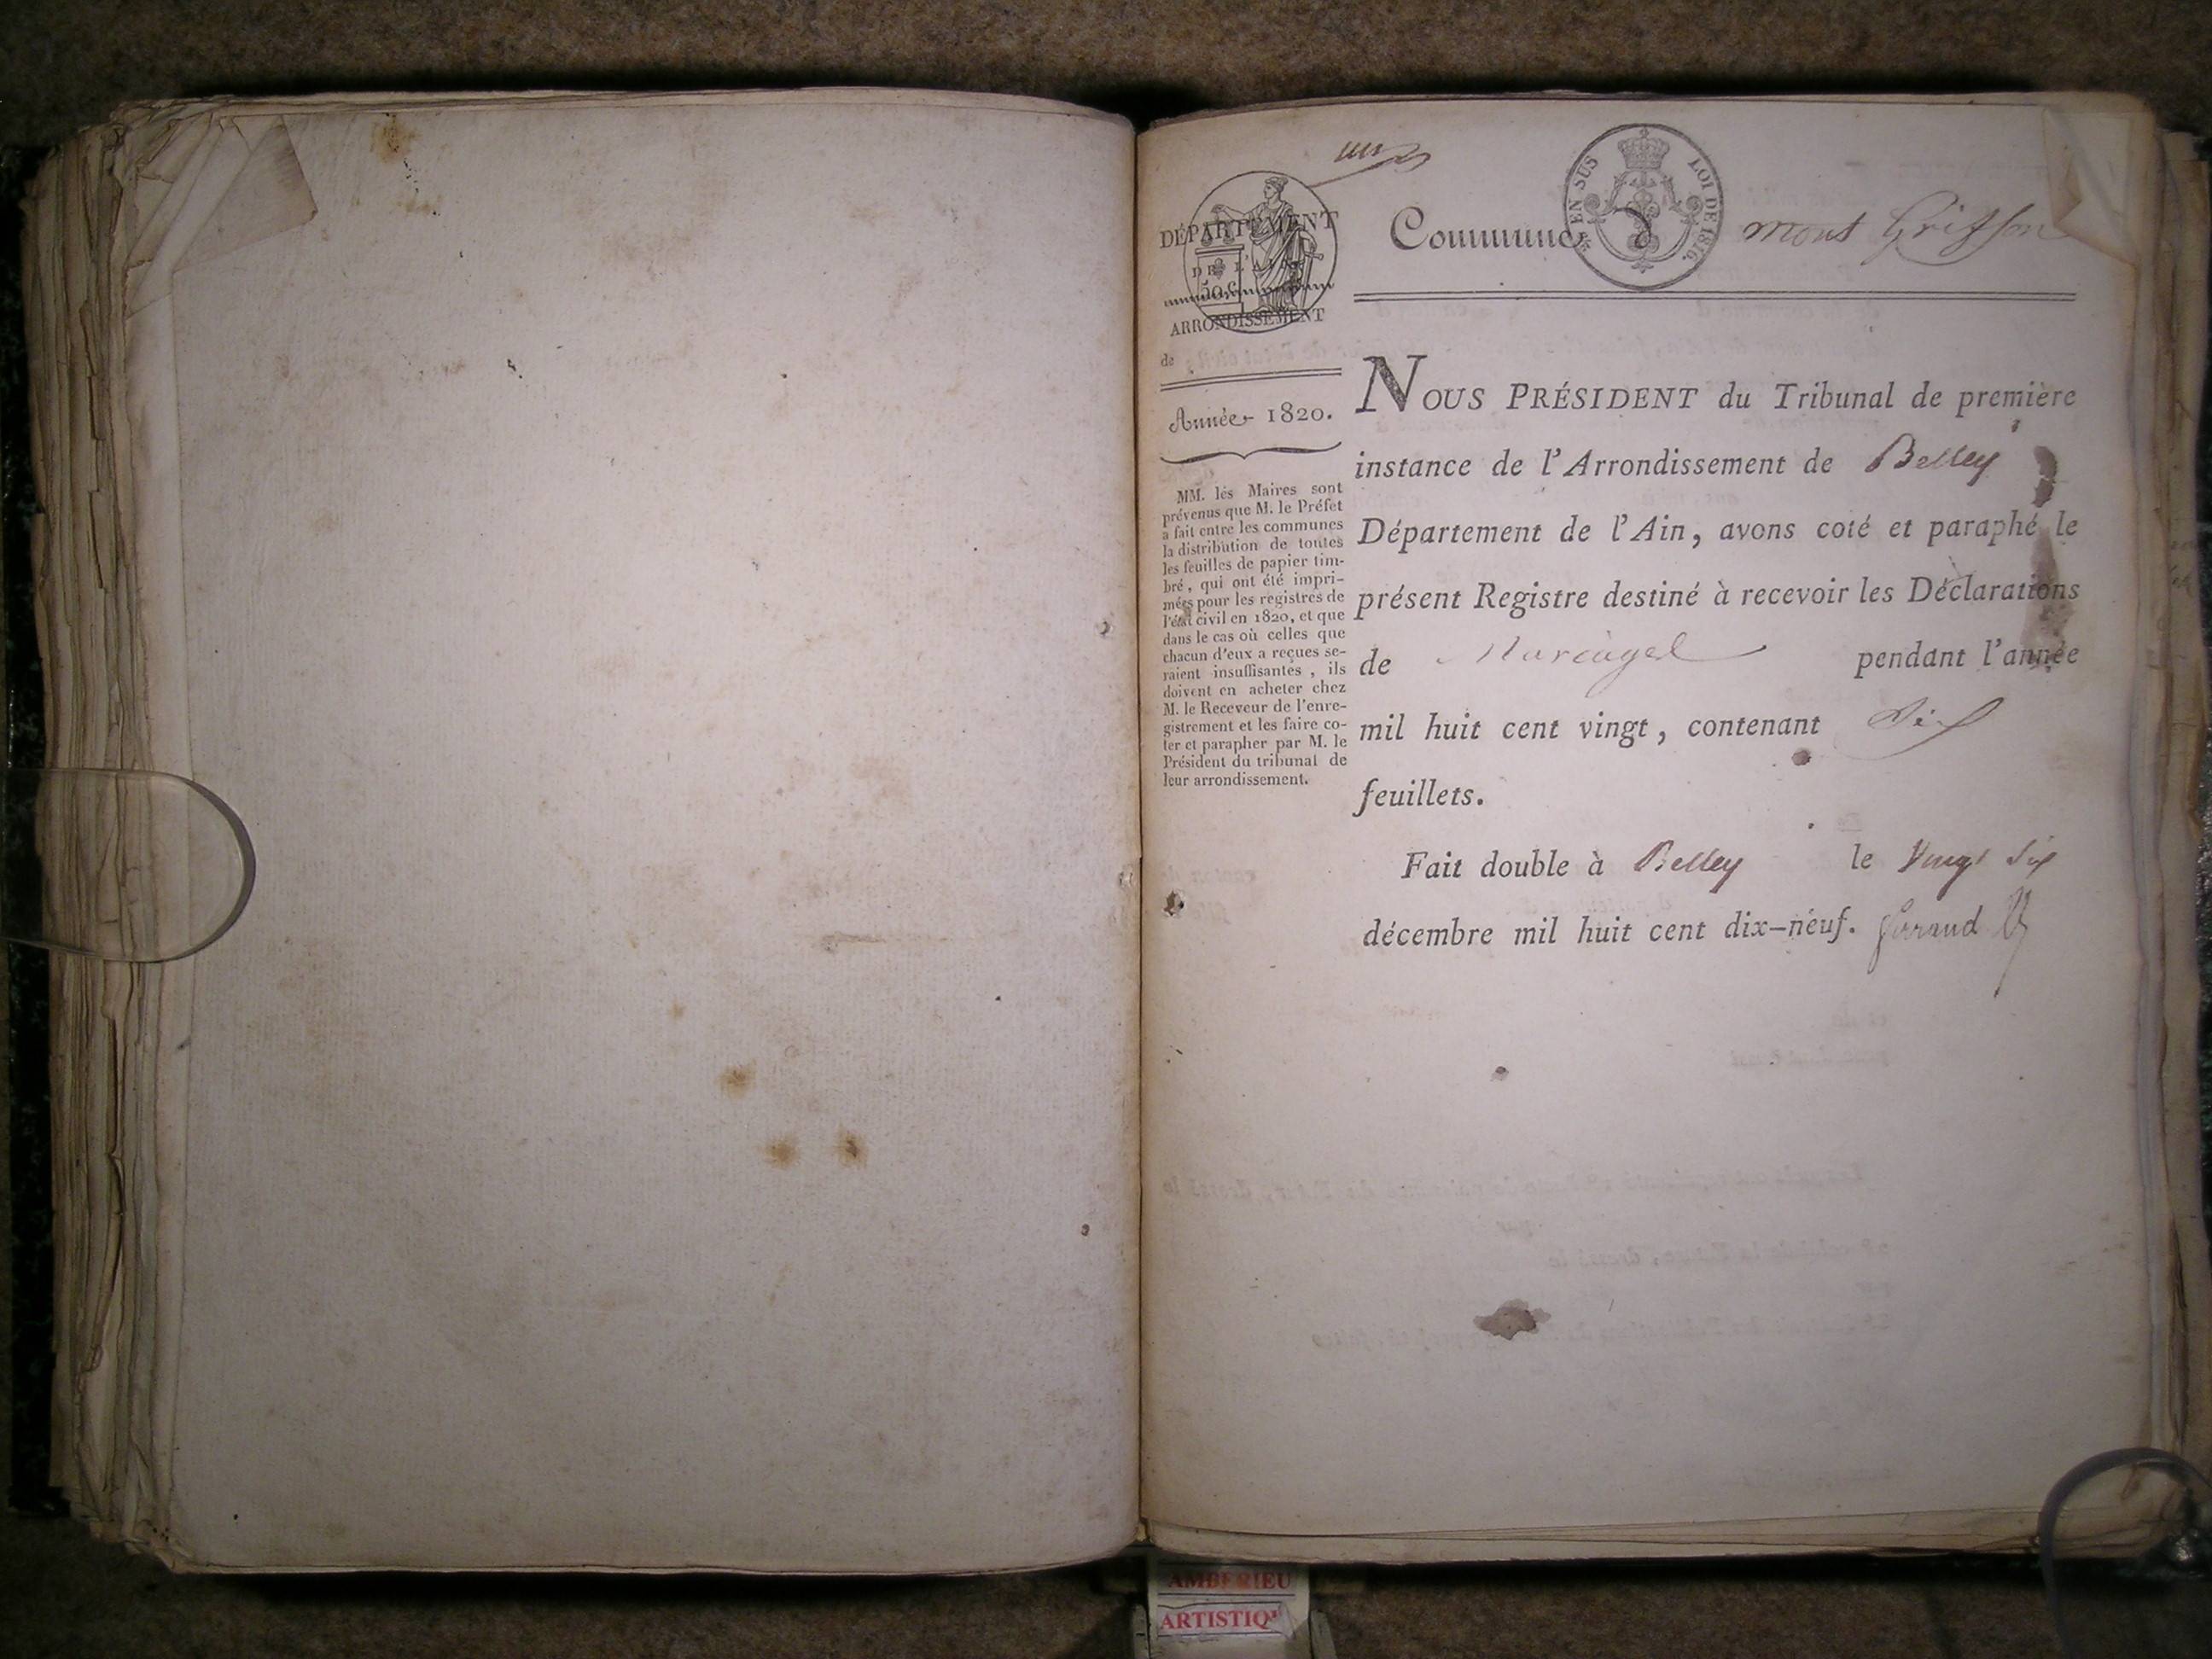 un
DÉPARTEMENT
DE L'AIN
50 C
ARRONDISSEMENT
de
Année 1820.
MM. les Maires sont
prévenus que M. le Préfet
a fait entre les communes
la distribution de toutes
les feuilles de papier tim-
bré, qui ont été impri-
mées pour les registres de
l'état civil en 1820, et que
dans le cas où celles que
chacun d'eux a reçues se-
raient insuffisantes, ils
doivent en acheter chez
M. le Receveur de l'enre-
gistrement et les faire co-
ter et parapher par M. le
Président du tribunal de
leur arrondissement.
EN SUS LOI DE 1816.
Commune d mont Griffon
NOUS PRÉSIDENT du Tribunal de première
instance de l'Arrondissement de Belley
Département de l'Ain, avons coté et paraphé le
présent Registre destiné à recevoir les Déclarations
de Mariages pendant l'année
mil huit cent vingt, contenant Six
feuillets.
Fait double à Belley le Vingt Six
décembre mil huit cent dix-neuf.
AMBERIEU
ARTISTIQ